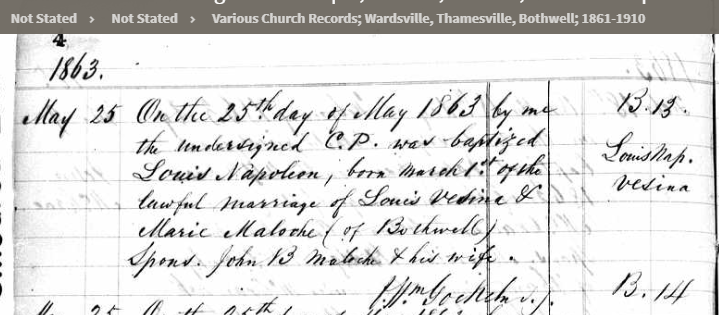 Not Stated › Not Stated › Various Church Records; Wardsville, Thamesville, Bothwell; 1861-1910
4
1863.
May 25 On the 25th day of May 1863 by me B. 13.
the undersigned C.P. was baptized
Louis Napoleon, born March 1st of the Louis Nap.
lawful marriage of Louis Vesina & Vesina
Marie Maloche (of Bothwell)
Spons. John B Maloche & his wife.
s.j. B. 14